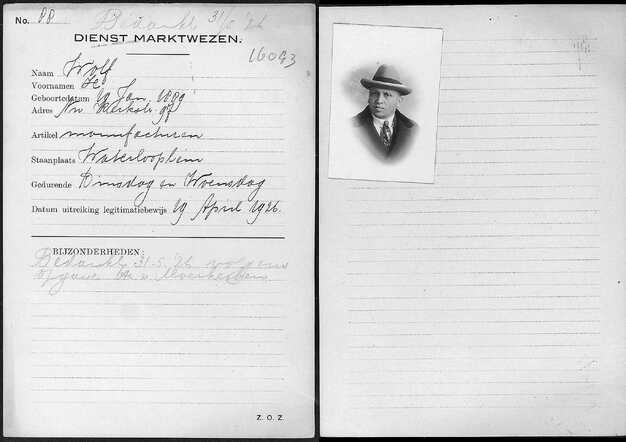 No. 88 Bedankt 31/5 '26
DIENST MARKTWEZEN.
16093
Naam Wolf
Voornamen
Geboortedatum 19 Jan. 1889
Adres Nw. Kerkstr. 97
Artikel manufacturen
Staanplaats Waterlooplein
Gedurende Dinsdag en Woensdag
Datum uitreiking legitimatiebewijs 29 April 1926.
BIJZONDERHEDEN:
Bedankt 31-5-'26 volgens
opgave
Z. O. Z.